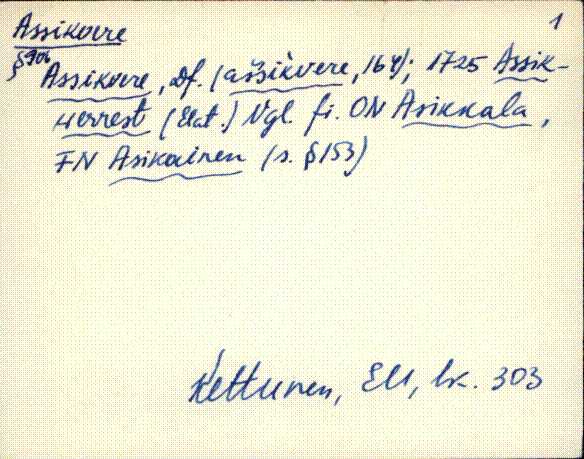 Assikvere 1
§906 Assikvere, Df. (aśśikvere, 164); 1725 Assik-
werrest (Elat.) Vgl. fi. ON Asikkala,
FN Asikainen (s. §153)
Kettunen, EU, lk. 303